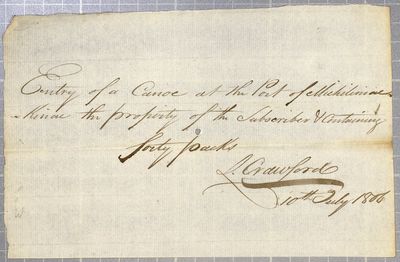 Entry of a Canoe at the Port of Michilimac
-kinac the property of the Subscriber & Containing
forty packs
L. Crawford
10th July 1806